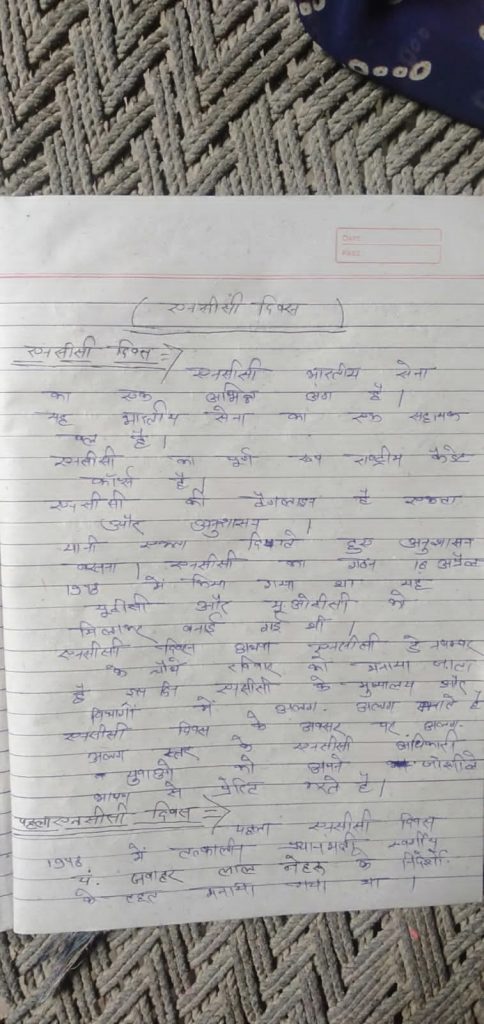 DATE
PAGE
( एनसीसी दिवस )
एनसीसी दिवस ⇒
एनसीसी भारतीय सेना
का एक अभिन्न अंग है |
यह भारतीय सेना का एक सहायक
दल है |
एनसीसी का पूर्ण रूप राष्ट्रीय कैडेट
कॉर्प्स है |
एनसीसी की टैगलाइन है एकता
और अनुशासन |
यानी एकता दिखाते हुए अनुशासन
रखना | एनसीसी का गठन 16 अप्रैल
1948 में किया गया था यह
यूसीसी और यूओटीसी को
मिलाकर बनाई गई थी |
एनसीसी दिवस अथवा एनसीसी डे नवम्बर
के चौथे रविवार को मनाया जाता
है इस दिन एनसीसी के मुख्यालय और
विभागों में अलग-अलग मनाते है
एनसीसी दिवस के अवसर पर अलग-
अलग स्तर के एनसीसी अधिकारी
युवाओं को अपने जोशीले
भाषण से प्रेरित करते है |
पहला एनसीसी दिवस ⇒
पहला एनसीसी दिवस
1948 में तत्कालीन प्रधानमंत्री स्वर्गीय
पं. जवाहर लाल नेहरू के निर्देशों
के तहत मनाया गया था |